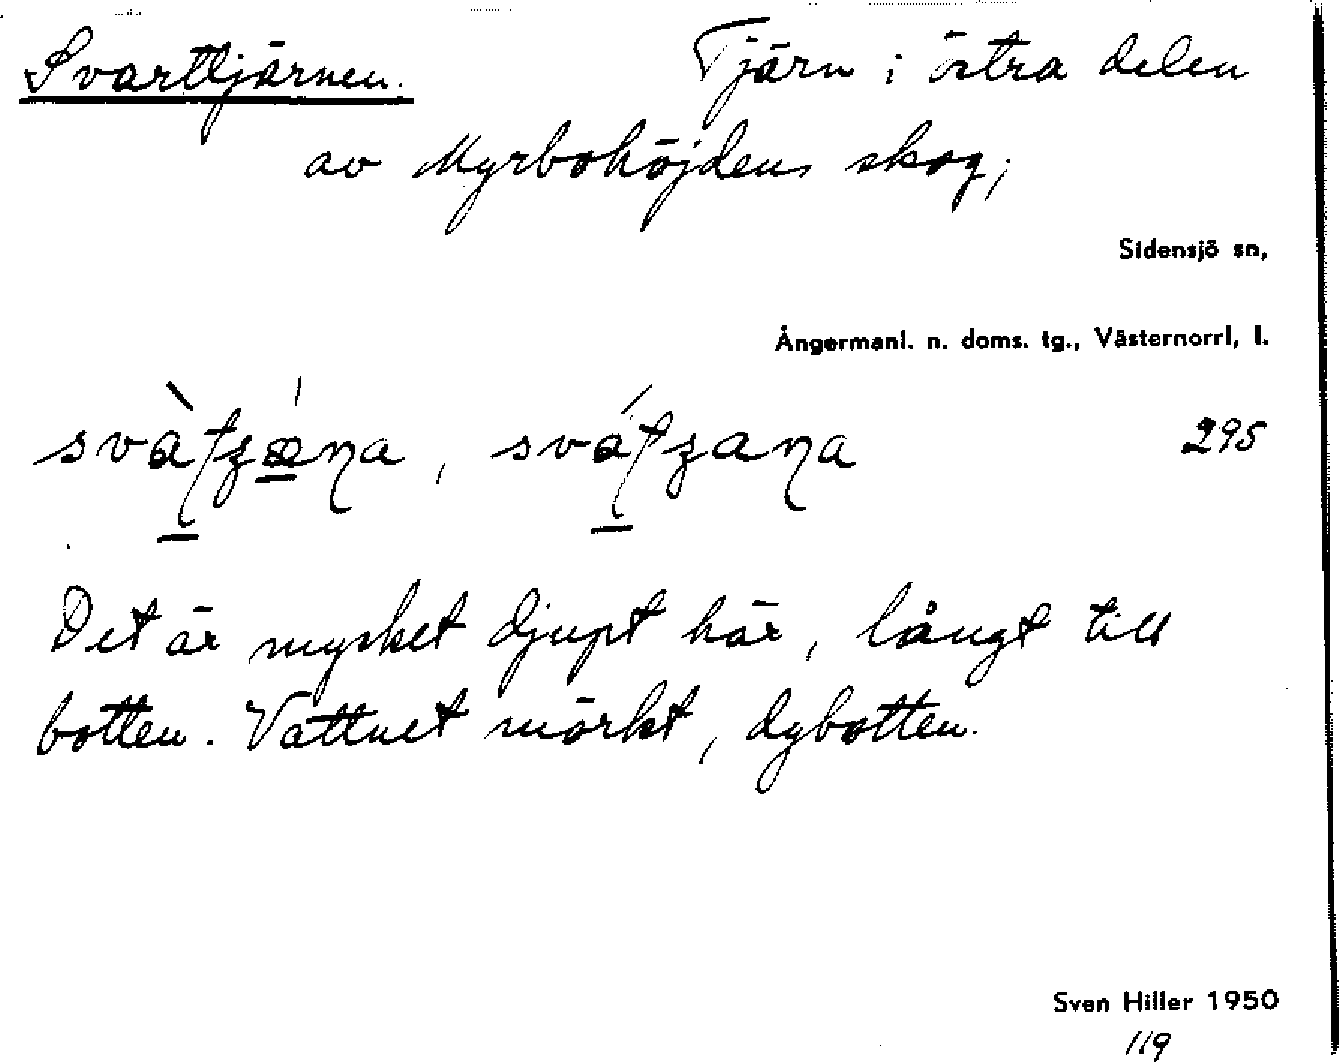 Svarttjärnen. Tjärn i östra delen
av Myrbohöjdens skog;
Sidensjö sn,
Ångermanl. n. doms. tg., Västernorrl, l.
295
Det är mycket djupt här, långt till
botten. Vattnet mörkt, dybotten.
Sven Hiller 1950
119